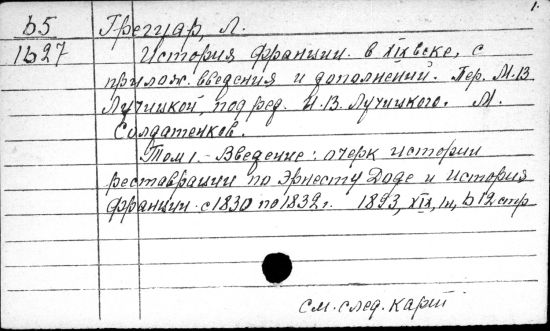 1.
б5 Грегуар, Л.
1627 История Франции в XIX веке, с
прилож. введения и дополнений. Пер. М.В
Лучицкой, под ред. И.В. Лучицкого. М.
Солдатенков.
Том I. Введение: очерк истории
реставрации по Эрнесту Доде и История
Франции с 1830 по 1832 г. 1893, XIX, III, 612 стр
см. след. карт